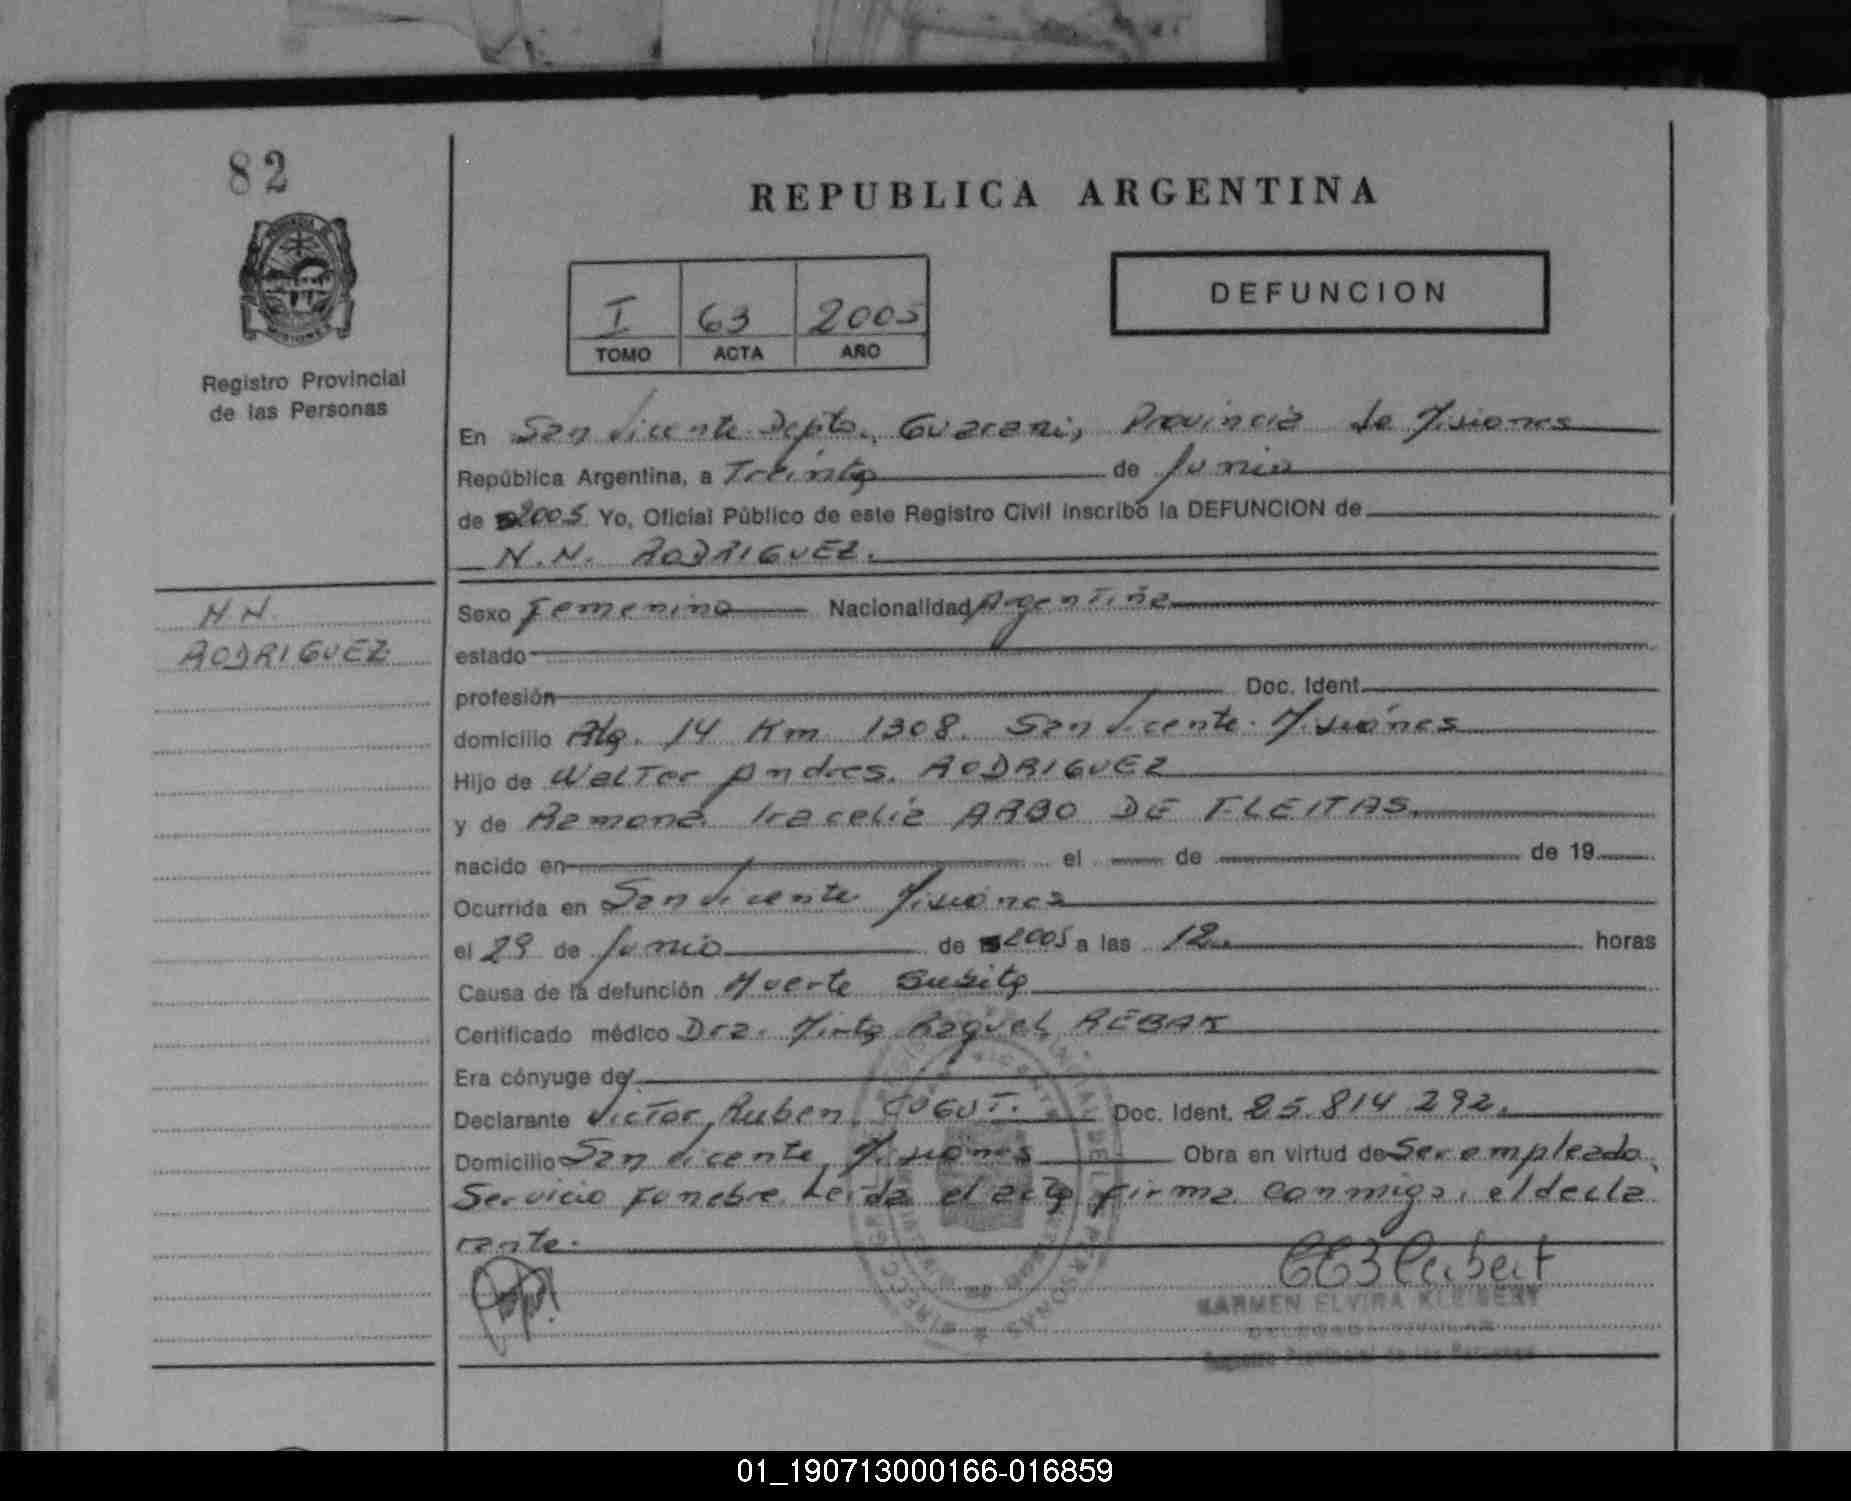 82
Registro Provincial
de las Personas
N.N.
RODRIGUEZ
REPUBLICA ARGENTINA
I 63 2005
TOMO ACTA AÑO
DEFUNCION
En San Vicente Depto., Guarani, Provincia de Misiones
República Argentina, a Treinta de Junio
de 2005 Yo, Oficial Público de este Registro Civil inscribo la DEFUNCION de
N.N. RODRIGUEZ.
Sexo Femenino Nacionalidad Argentina
estado
profesión Doc. Ident.
domicilio Km 1308. San Vicente. Misiones
Hijo de Walter Andres. RODRIGUEZ
y de Ramona Iracelia ARBO DE FLEITAS.
nacido en el de de 19
Ocurrida en San Vicente Misiones
el 29 de Junio de 2005 a las 12. horas
Causa de la defunción Muerte Subita
Certificado médico Dra. Mirta Raquel REBAK
Era cónyuge de
Declarante Victor Ruben Doc. Ident. 25.814 292.
Domicilio San Vicente, Misiones Obra en virtud de Ser empleado
Servicio Funebre. Leida el acta firma conmigo, el decla
rante.
KARMEN ELVIRA KLEIBERT
Registro Provincial de las Personas
01_190713000166-016859